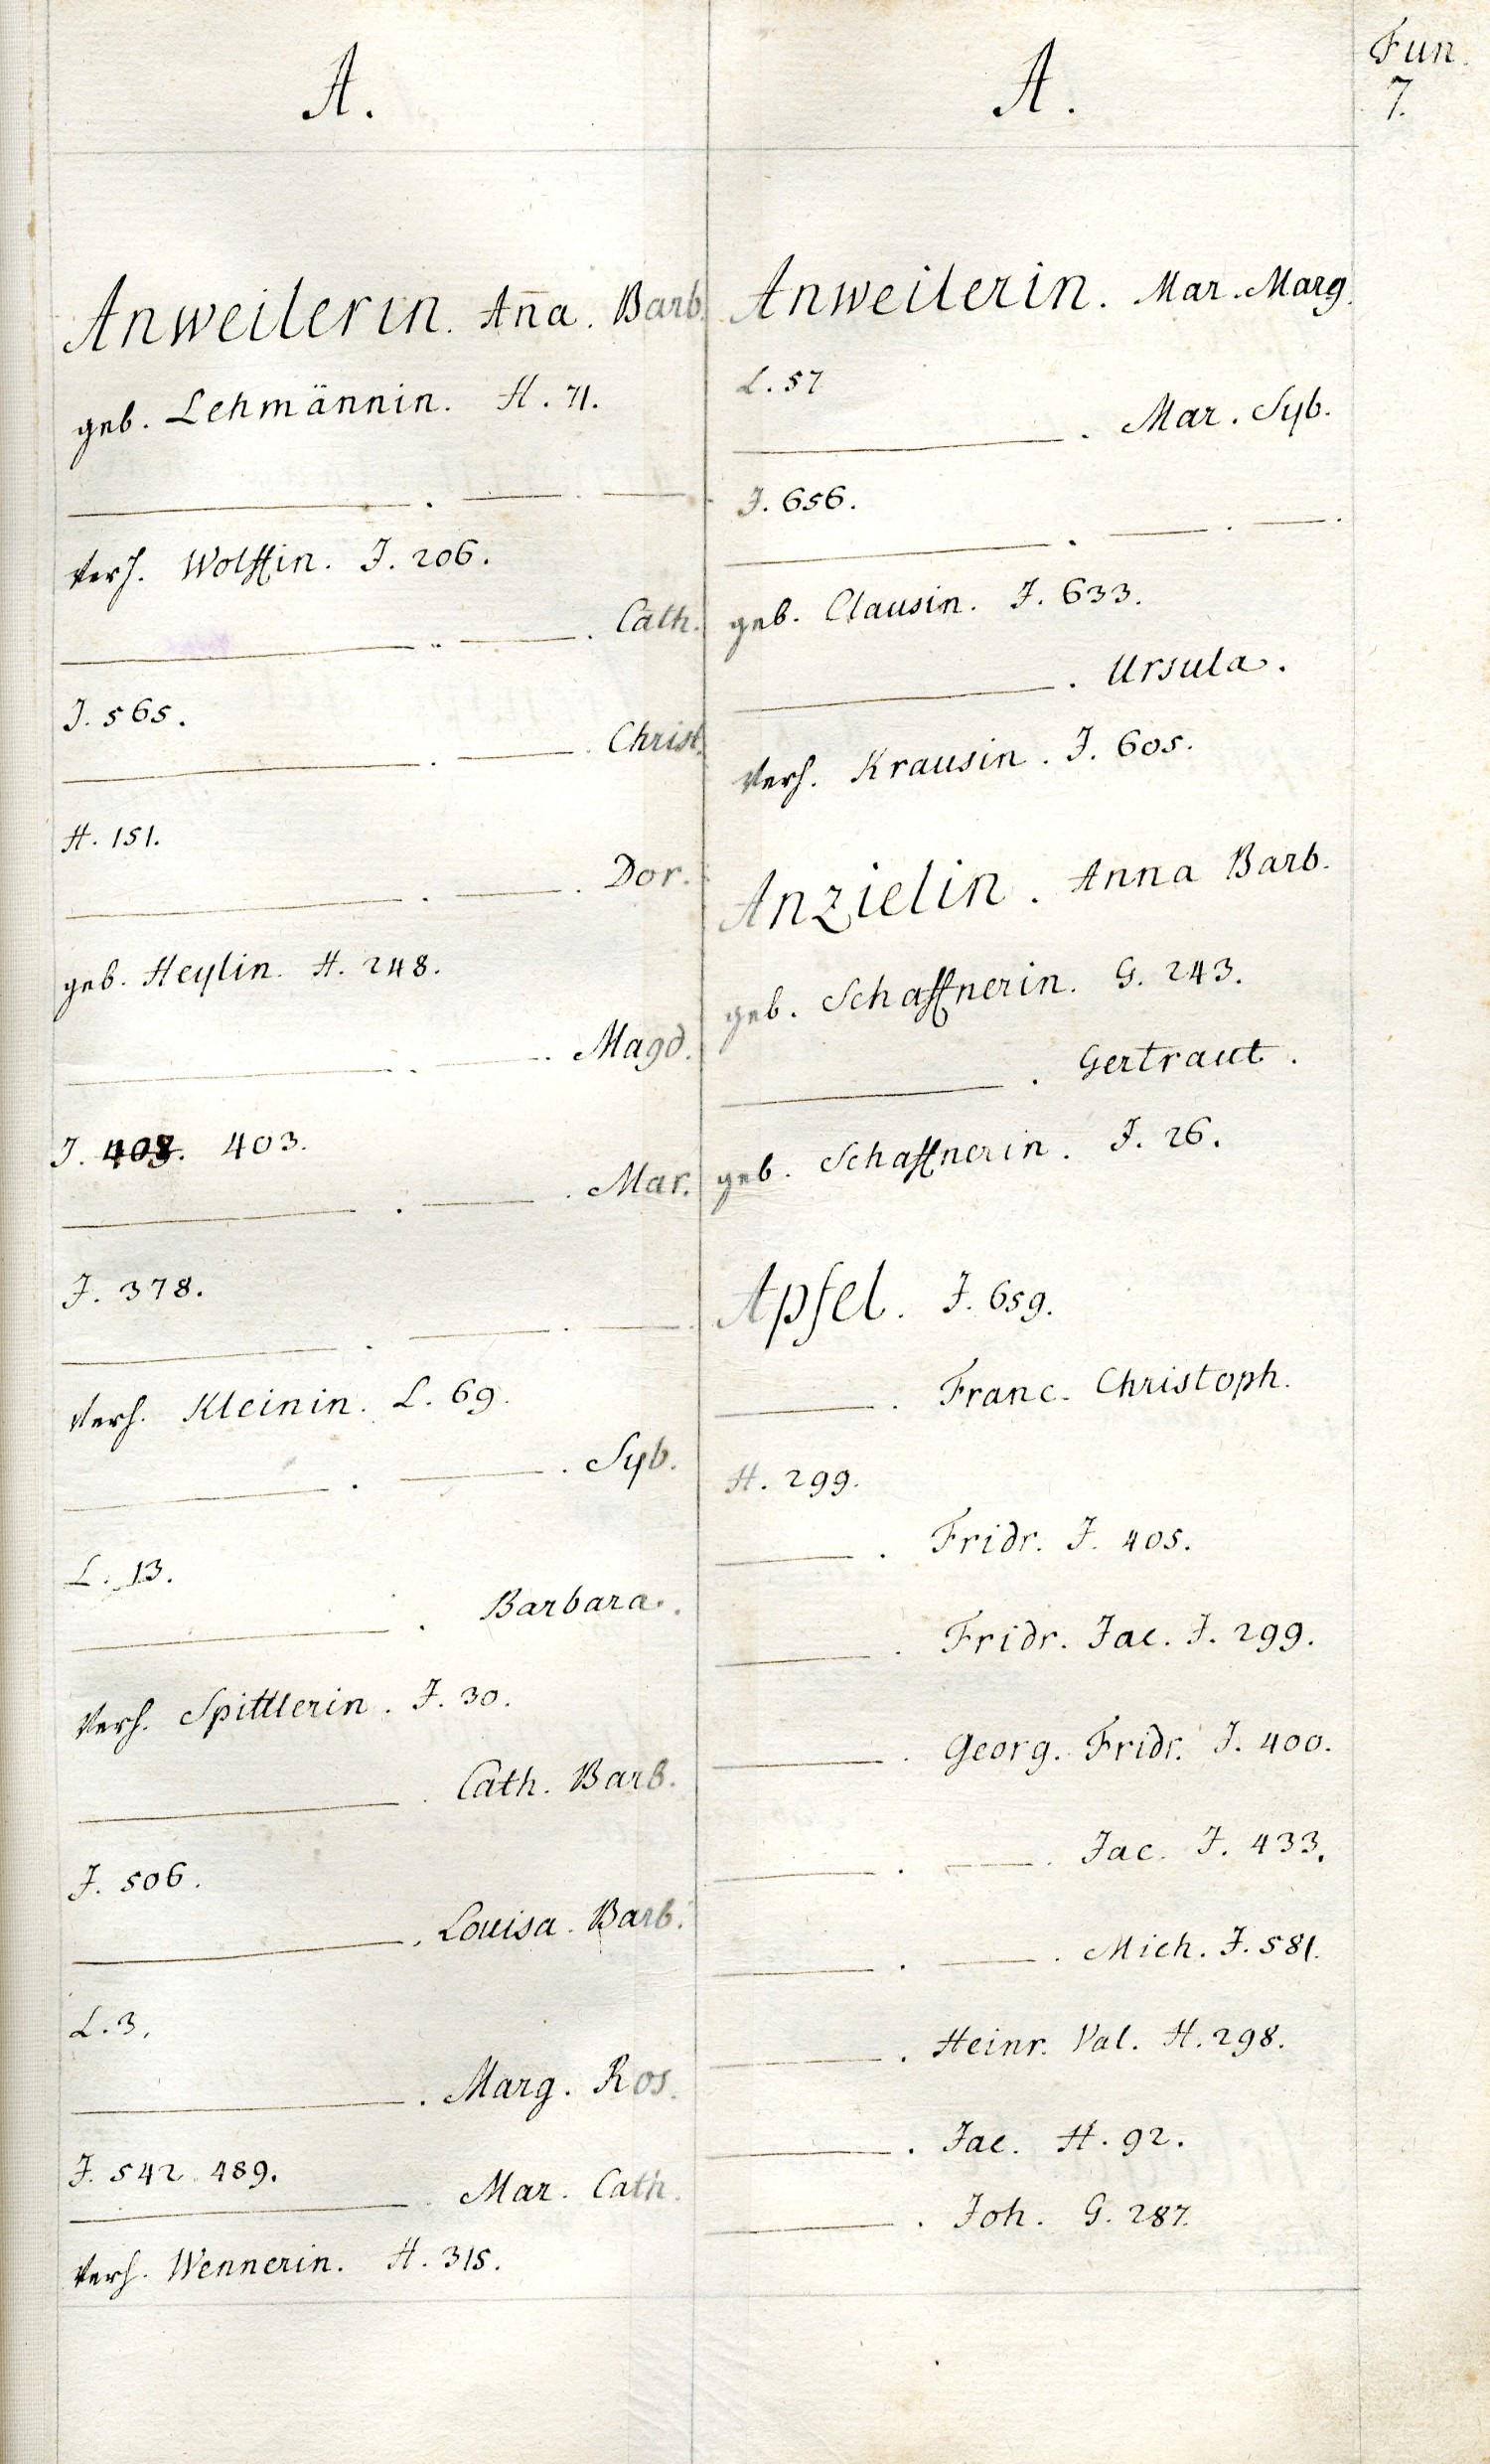 Fun.
7.
A.
Anweilerin. Aña. Barb.
geb. Lehmännin. H. 71.
———. ———. ———.
Verh. Wolffin. J. 206.
———. ———. Cath.
J. 565.
———. ———. Christ.
H. 151.
———. ———. Dor.
geb. Heylin. H. 248.
———. ———. Magd.
J. 403.
———. ———. Mar.
J. 378.
———. ———. ———.
Verh. Kleinin. L. 69.
———. ———. Syb.
L. 13.
———. Barbara.
Verh. Spittlerin. J. 30.
———. Cath. Barb.
J. 506.
———. Louisa. Barb.
L. 3.
———. Marg. Ros.
J. 542. 489.
———. Mar. Cath.
Verh. Wennerin. H. 315.
A.
Anweilerin. Mar. Marg.
L. 57
———. Mar. Syb.
J. 656.
———. ———. ———.
geb. Clausin. J. 633.
———. Ursula.
Verh. Krausin. J. 605.
Anzielin. Anna Barb.
geb. Schaffnerin. G. 243.
———. Gertraut.
geb. Schaffnerin. J. 26.
Apfel. J. 659.
———. Franc. Christoph.
H. 299.
———. Fridr. J. 405.
———. Fridr. Jac. J. 299.
———. Georg. Fridr. J. 400.
———. ———. Jac. J. 433.
———. ———. Mich. J. 581.
———. Heinr. Val. H. 298.
———. Jac. H. 92.
———. Joh. G. 287.